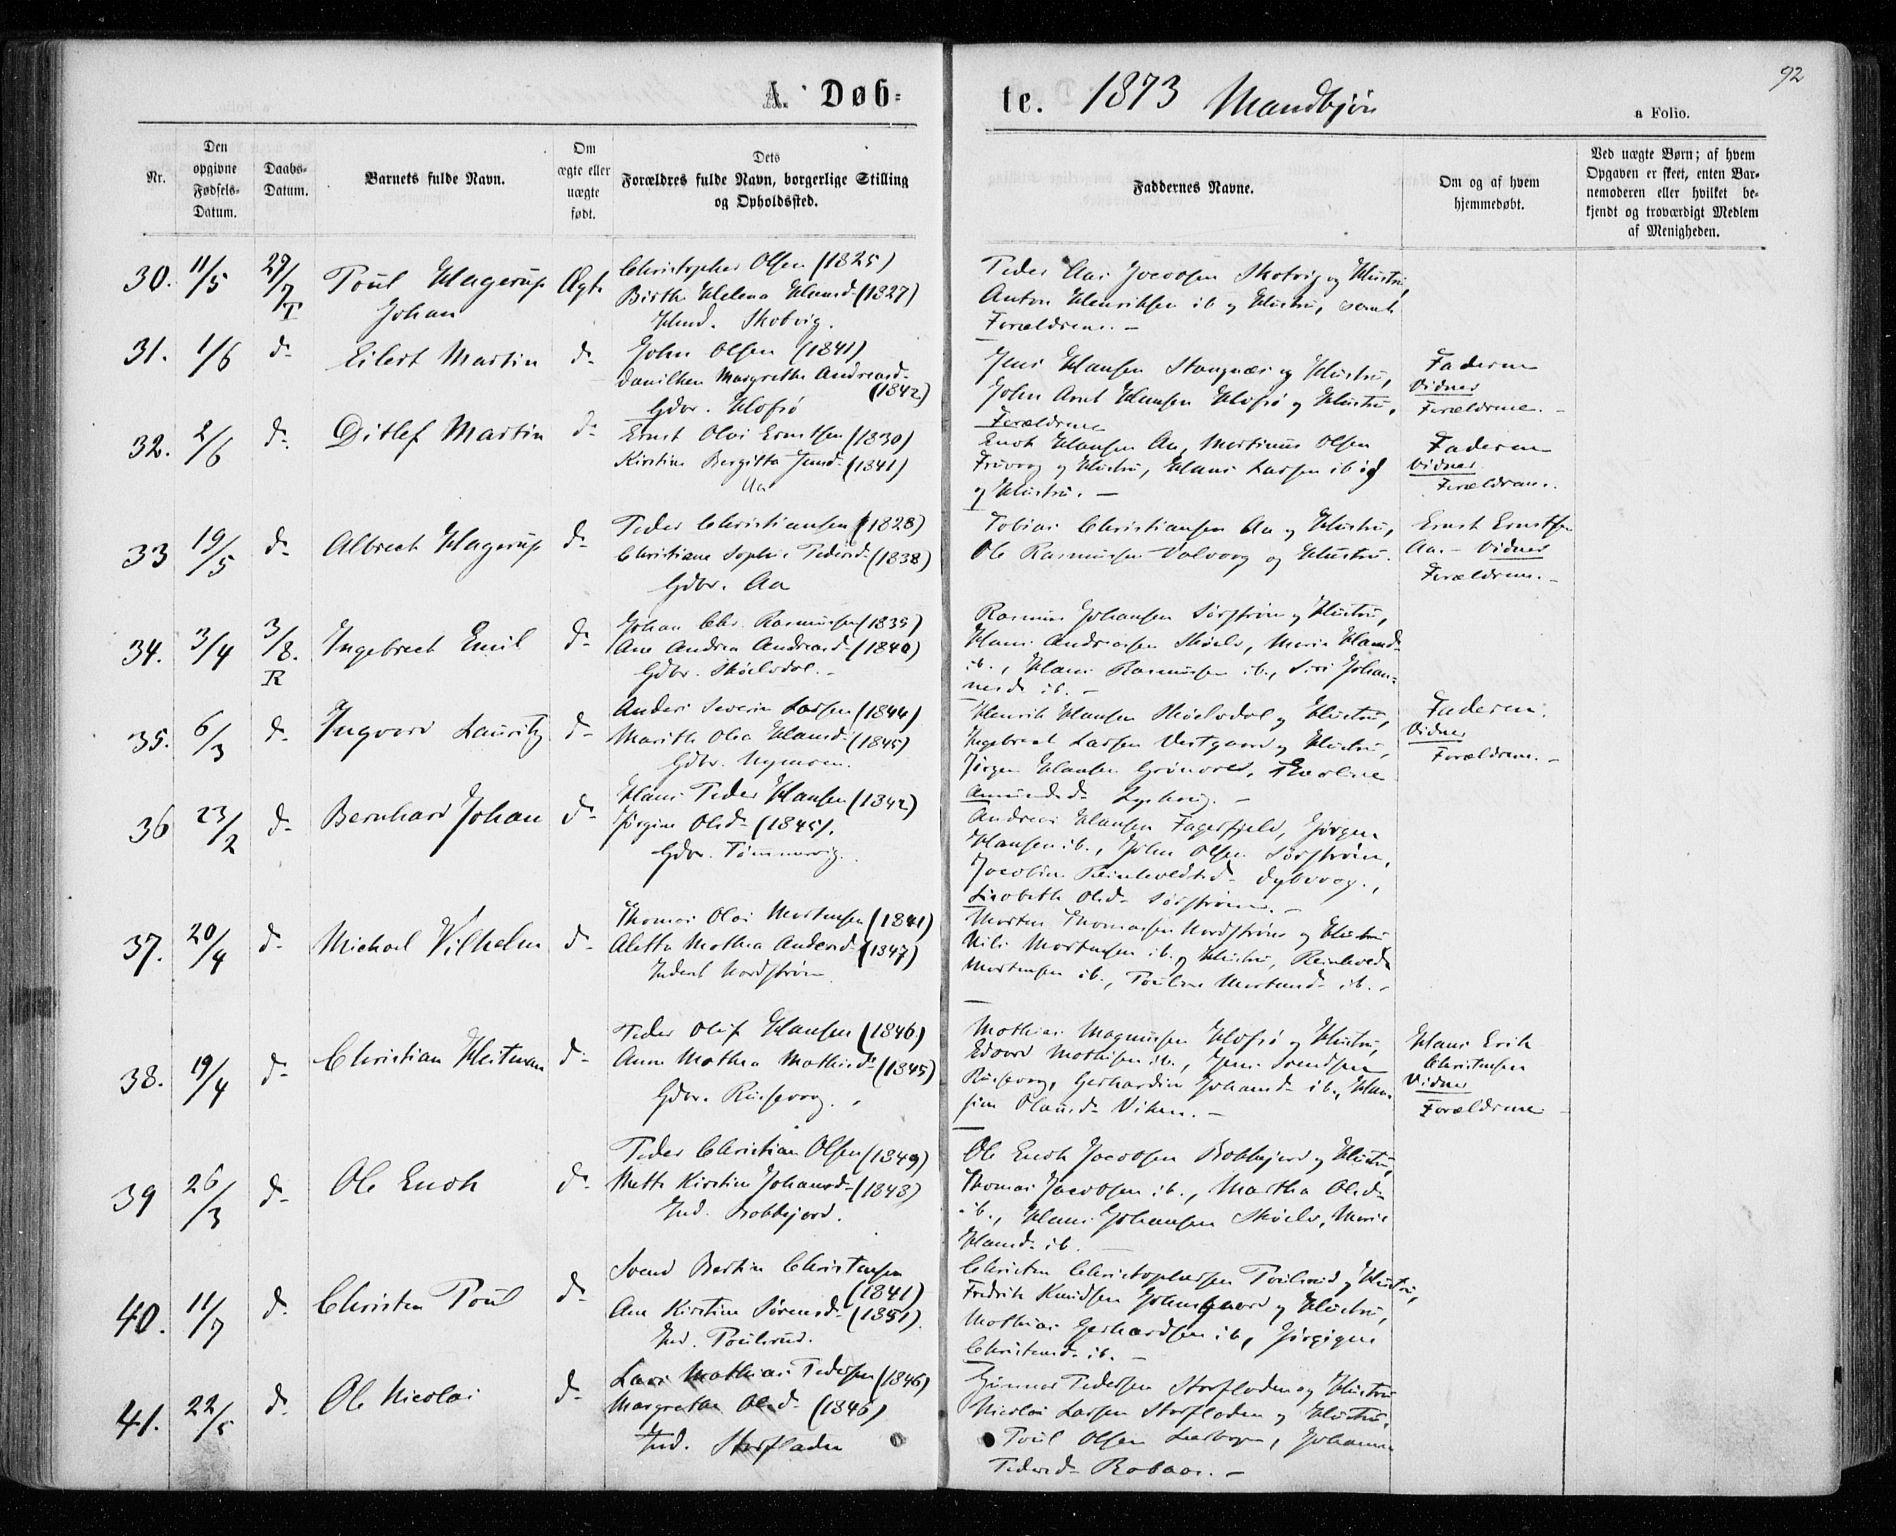 92
A. Døb-
te. 1873 Mandkjøn
a Folio.
Nr.
Den opgivne Fødsels-Datum.
Daabs-Datum.
Barnets fulde Navn.
Om ægte eller uægte født.
Dets Forældres fulde Navn, borgerlige Stilling og Opholdssted.
Faddernes Navne.
Om og af hvem hjemmedøbt.
Ved uægte Børn; af hvem Opgaven er skeet, enten Barnemoderen eller hvilket bekjendt og troværdigt Medlem af Menigheden.
30. 11/5 27/7 T Poul Hagerup Ægte Christopher Olsen (1825)
Johan Birth Helena Hansd. (1827)
Skotvig.
Peder Jacobsen Skotvig og Hustru,
Anton Henriksen ib og Hustru, samt
Forældrene. -
31. 1/6 do Eilert Martin do John Olsen (1841)
Danilken Margrethe Andreasd.
(1842)
Gdbr. Klofsø
Jens Hansen Stangnæs og Hustru,
John Arnt Hansen Klofsø og Hustru,
Forældrene
Faderen
Vidner
Forældrene. -
32. 2/6 do Ditlef Martin do Ernst Olai Ernstsen (1830)
Kirstine Bergitta Jensd. (1841)
Aa
Enok Hansen Aa, Martinus Olsen
og Hustru, Hans Larsen ib
og Hustru. -
Faderen
Vidner
Forældrene.
33 19/5 do Albrect Hagerup do Peder Christiansen (1828)
Christiane Sophie Pedersd. (1838)
Gdbr. Aa
Tobias Christiansen Aa og Hustru,
Ole Rasmussen Valvaag og Hustru.
Ernst Ernstsen
Aa. - Vidner
Forældrene. -
34. 3/4 3/8. R Ingebrect Emil do Johan Chr. Rasmussen (1835)
Ane Andrea Andreasd. (1840)
Gdbr. Skøelvdal. -
Rasmus Johansen Sørstrøm og Hustru,
Hans Andreasen Skøelv, Marie Hansd.
ib., Hans Rasmussen ib., Siri Johan-
nesd. ib. -
35. 6/3 do Ingvard Lauritz do Anders Severin Larsen (1844)
Marith Olea Hansd. (1845)
Gdbr. Nymoen.
Henrik Hansen Skøelvdal og Hustru,
Ingebrect Larsen Vestgaard og Hustru,
Jørgen Hansen Grønvold,
Amundsd.
Faderen.
Vidner
Forældrene. -
36 23/2 do Bernhard Johan do Hans Peder Hansen (1842)
Jørgine Olsd. (1845).
Gdbr. Tømmervig.
Andreas Hansen Fagerfjeld, Jørgen
Hansen ib., John Olsen Sørstrøm,
Jacobine Reinholdtsd. Dybvaag.,
Lisabeth Olsd. Sørstrøm. -
37. 20/4 do Michael Vilhelm do Thomas Olai Mortensen (1841)
Aletta Mathea Andersd. (1847)
Inderst Nordstrøm
Morten Thomassen Nordstrøm og Hustru
Nils Mortensen ib. og Hustru, Reinholdt
Mortensen ib., Pouline Mortensd. ib. -
38. 19/4 do Christian Heitman do Peder Oluf Hansen (1846)
Anne Mathea Mathisd. (1845)
Gdbr. Russevaag.
Mathias Magnussen Klofsø og Hustru,
Edvard Mathisen ib., Jens Svendsen
Russevaag, Gerhardine Johansd. ib., Han-
sine Olausd. Viken. -
Hans Erik
Christensen
Vidner
Forældrene -
39 26/3 do Ole Enok do Peder Christian Olsen (1849)
Mette Kirstine Johansd. (1848)
Ind. Bobbejord.
Ole Enok Jacobsen Bobbejord og Hustru,
Thomas Jacobsen ib., Martha Olsd.
ib., Hans Johansen Skøelv, Marie
Hansd. ib. -
40. 11/7 do Christen Poul do Svend Bertin Christensen
(1841)
Ane Kirstine Sørensd. (1851).
Ind. Poulsrud.
Christen Christophersen Poulsrud og Hustru,
Fredrik Knudsen Johnsgaard og Hustru,
Mathias Gerhardsen ib., Jørgine
Christensd. ib. -
41. 22/5 do Ole Nicolai do Lars Mathias Pedersen (1846)
Margrethe Olsd. (1846)
Ind. Storfladen
Gunnar Pedersen Storfladen og Hustru
Nicolai Larsen Storfladen og Hustru,
Poul Olsen, Johanna
Pedersd. -